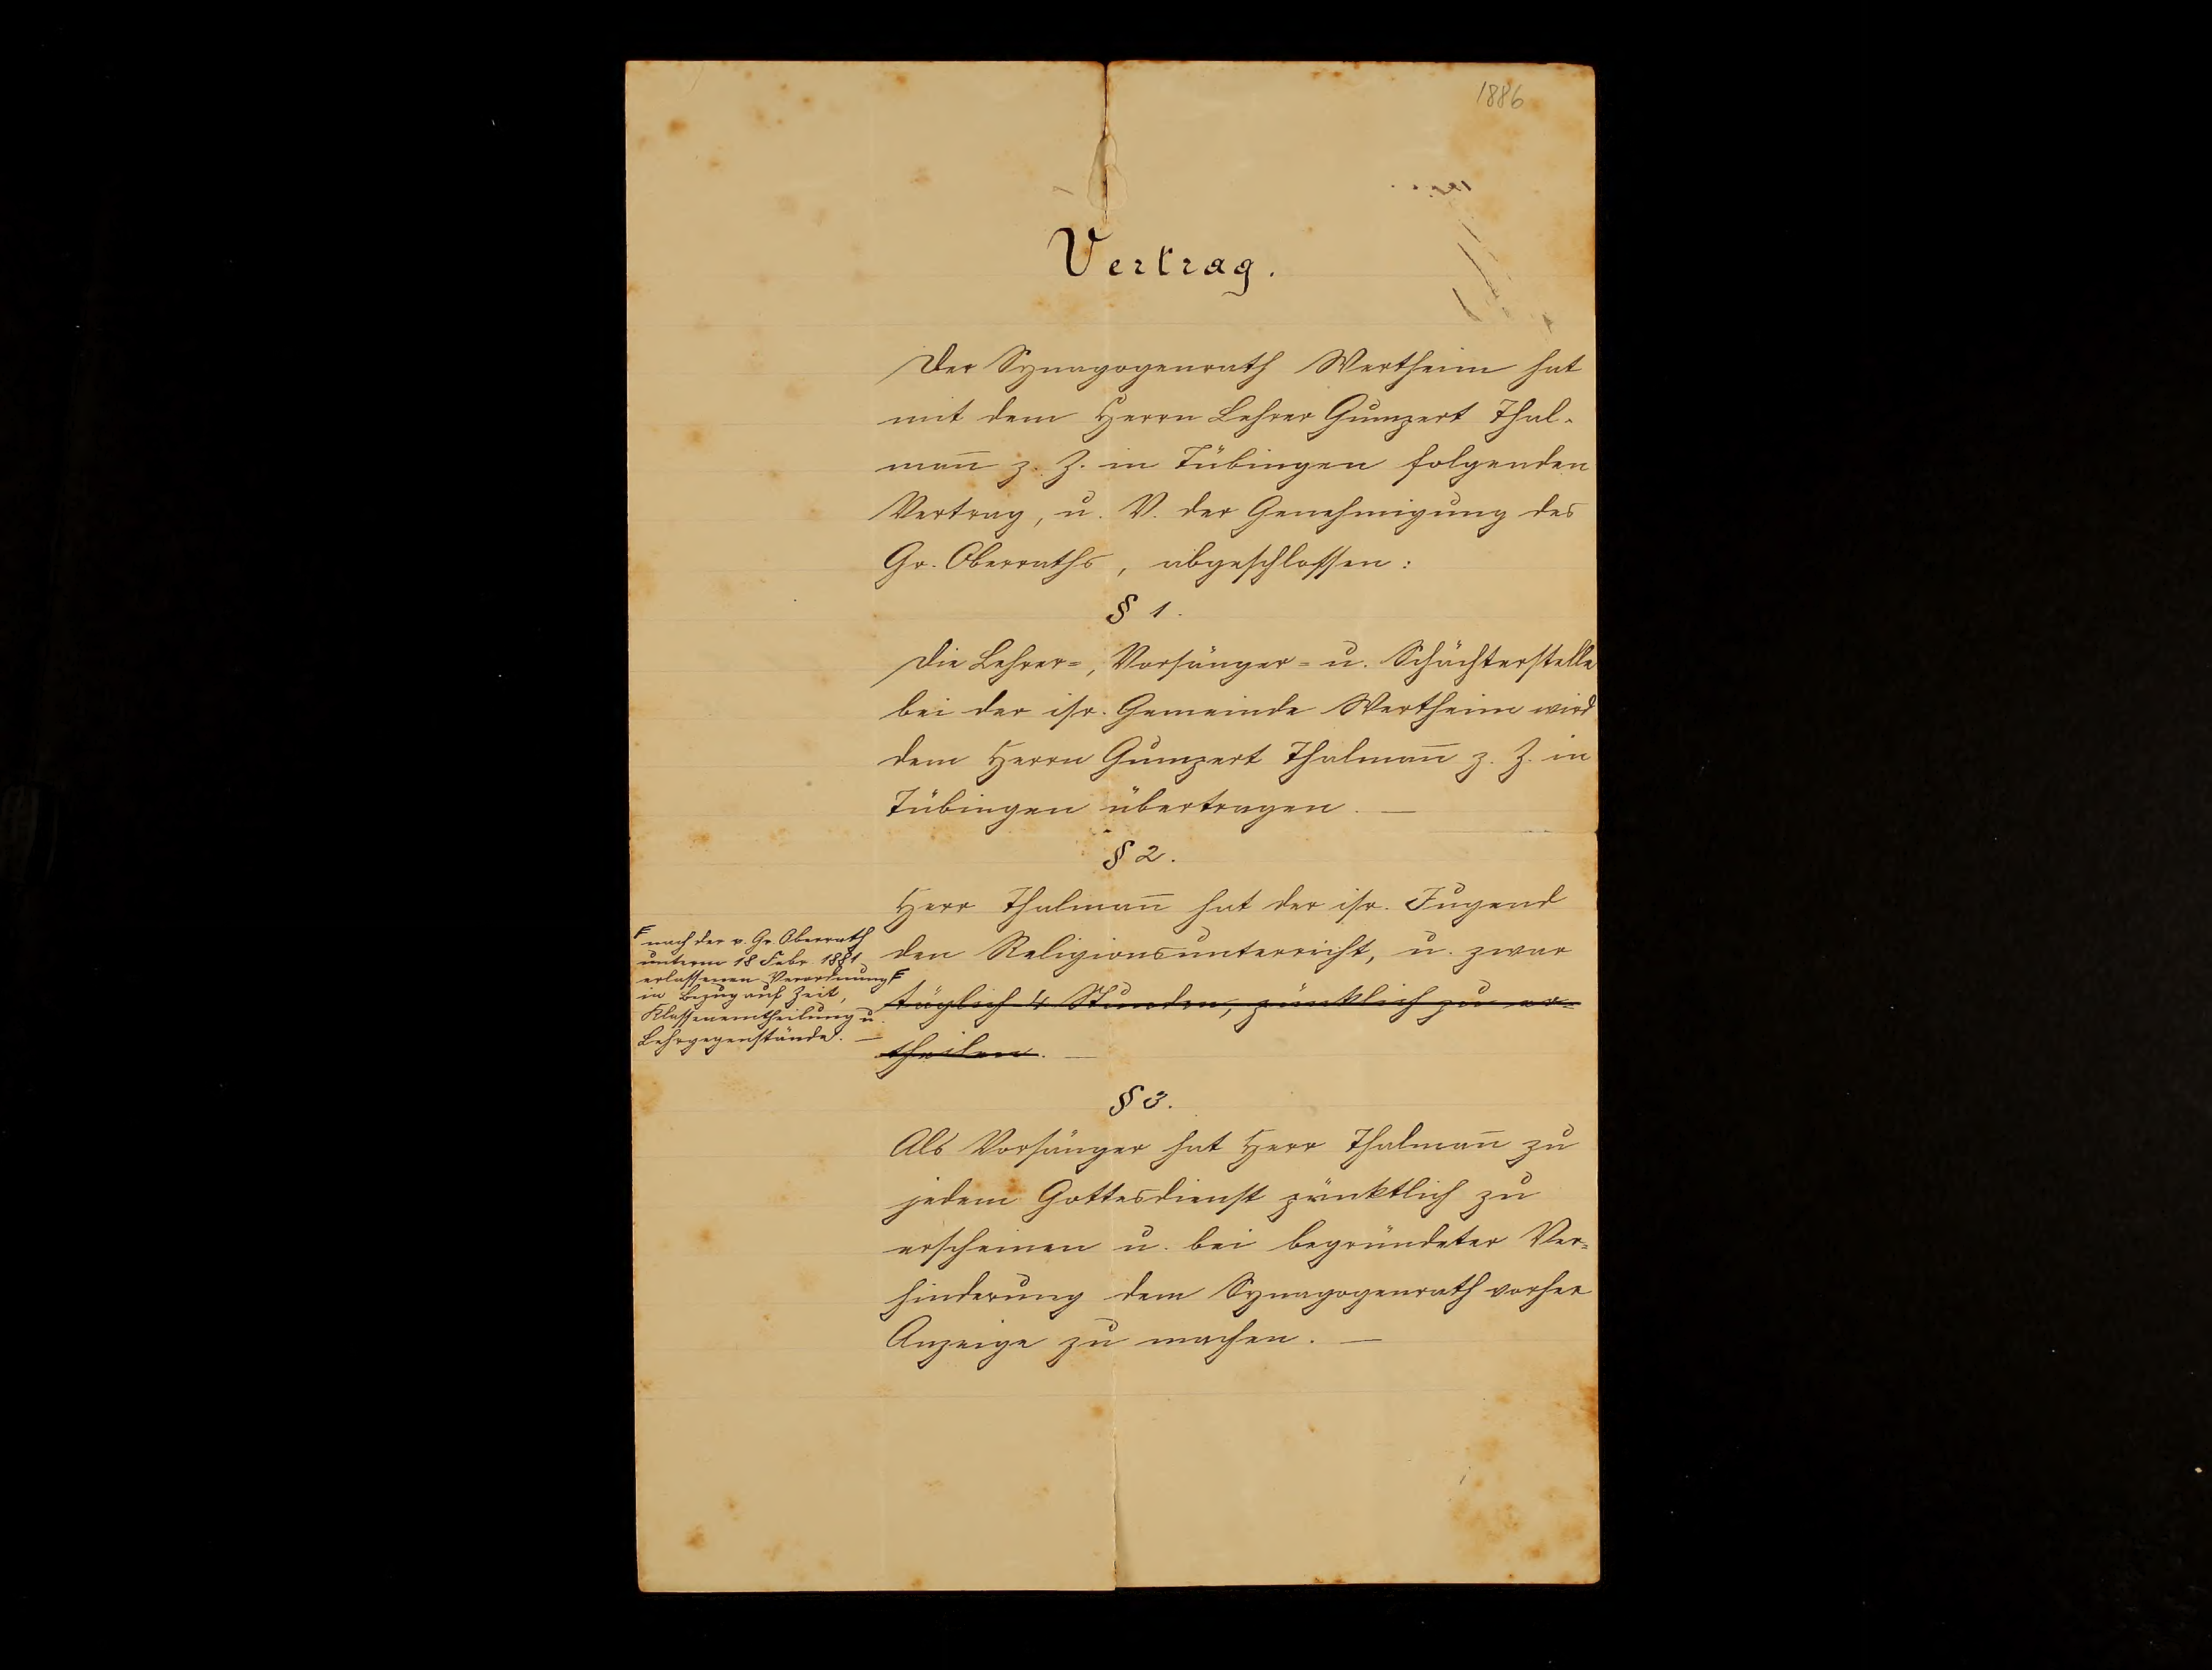 1886
Vertrag.
Der Synagogenrath Wertheim hat
mit dem Herrn Lehrer Gumpert Thal-
man̅ z. Z. in Tübingen folgenden
Vertrag, u. V. der Genehmigung des
Gr. Oberraths, abgeschlossen:
§ 1.
Die Lehrer=, Vorsänger= u. Schächterstelle
bei der isr. Gemeinde Wertheim wird
dem Herrn Gumpert Thalman̅ z. Z. in
Tübingen übertragen. —
§ 2.
Herr Thalman̅ hat der isr. Jugend
den Religionsunterricht, u. zwar F
täglich 4 Stunden, pünktlich zu er=
theilen. —
F nach der v. Gr. Oberrath
unterm 18 Febr. 1881
erlassenen Verordnung
in Bezug auf Zeit,
Klasseneintheilung u.
Lehrgegenstände. —
§ 3.
Als Vorsänger hat Herr Thalman̅ zu
jedem Gottesdienst pünktlich zu
erscheinen u. bei begründeter Ver=
hinderung dem Synagogenrath vorher
Anzeige zu machen. —